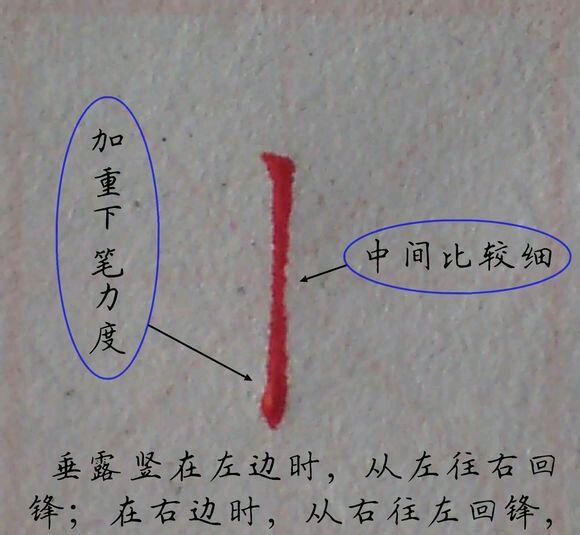 加重下笔力度
中间比较细
垂露竖在左边时，从左往右回
锋；在右边时，从右往左回锋，